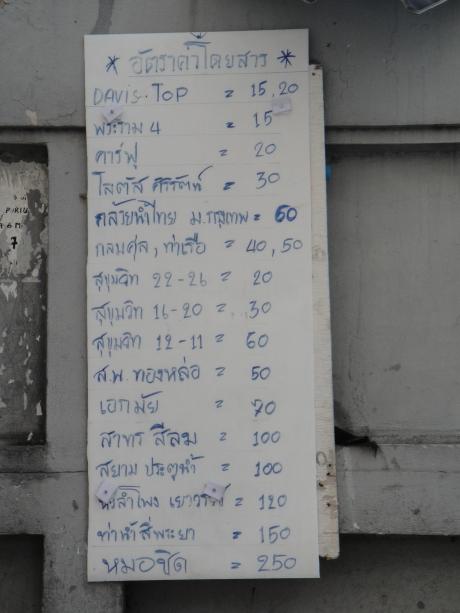 * อัตราค่าโดยสาร *
DAVIS.TOP = 15,20
พระราม 4 = 15
คาร์ฟู = 20
โลตัส ศิริรัตน์ = 30
กล้วยน้ำไทย ม.กรุงเทพ = 60
กลมศุล, ท่าเรือ = 40,50
สุขุมวิท 22-26 = 20
สุขุมวิท 16-20 = 30
สุขุมวิท 12-11 = 60
ส.พ. ทองหล่อ = 50
เอกมัย = 70
สาทร สีลม = 100
สยาม ประตูน้ำ = 100
หัวลำโพง เยาวราช = 120
ท่าน้ำสี่พระยา = 150
หมอชิต = 250